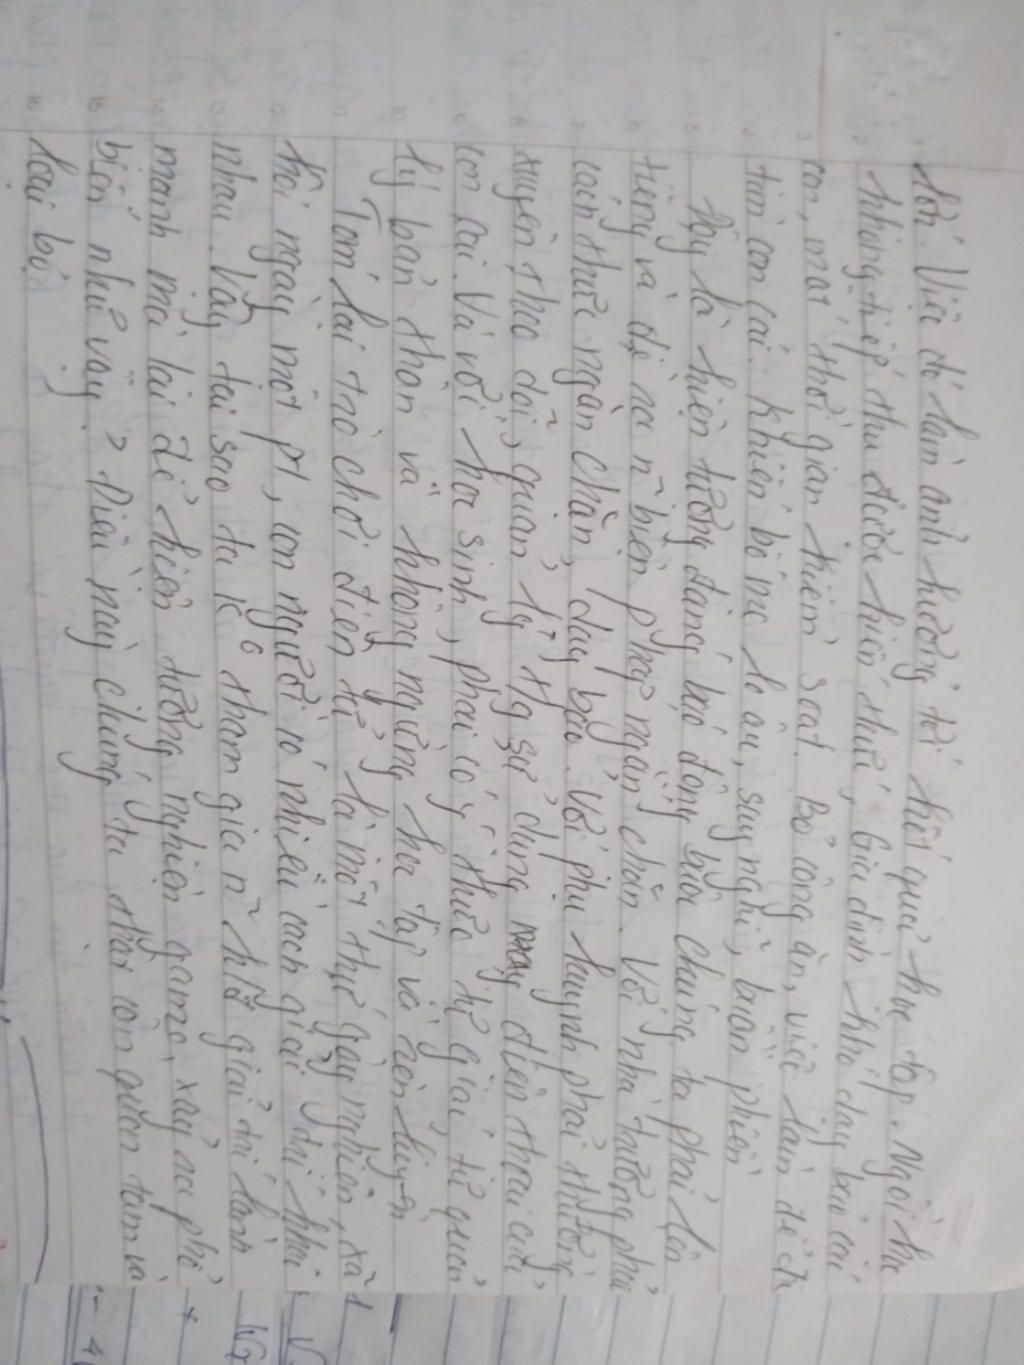 hơn. Việc đó làm ảnh hưởng tới kết quả học tập. Ngồi học
không tiếp thu được kiến thức, Gia đình khó dạy bảo cái
con, mất thời gian kiểm soát. Bỏ công ăn, việc làm để đi
tìm con cái. khiến bố mẹ lo âu, suy nghĩ, buồn phiền
Đây là hiện tượng đáng báo động, bởi chúng ta phải lên
tiếng và đề ra n~ biện pháp ngăn chặn. Với nhà trường phải
cách thức ngăn chặn, dạy bảo. Với phụ huynh phải thường
xuyên theo dõi, quản lý thg sử dụng máy điện thoại của
con cái. Và với học sinh, phải có ý thức tự giác, tự quản
lý bản thân và không ngừng học tập và rèn luyện
Tóm lại trò chơi điện tử là một thứ gây nghiện, xã
hội ngày một pt, con người có nhiều cách giải trí khác
nhau. Vậy tại sao ta k⁶ tham gia n~ hđ giải trí lành
mạnh mà lại để hiện tượng nghiện game xảy ra phổ
biến như vậy? Điều này chúng ta cần quan tâm và
loại bỏ.